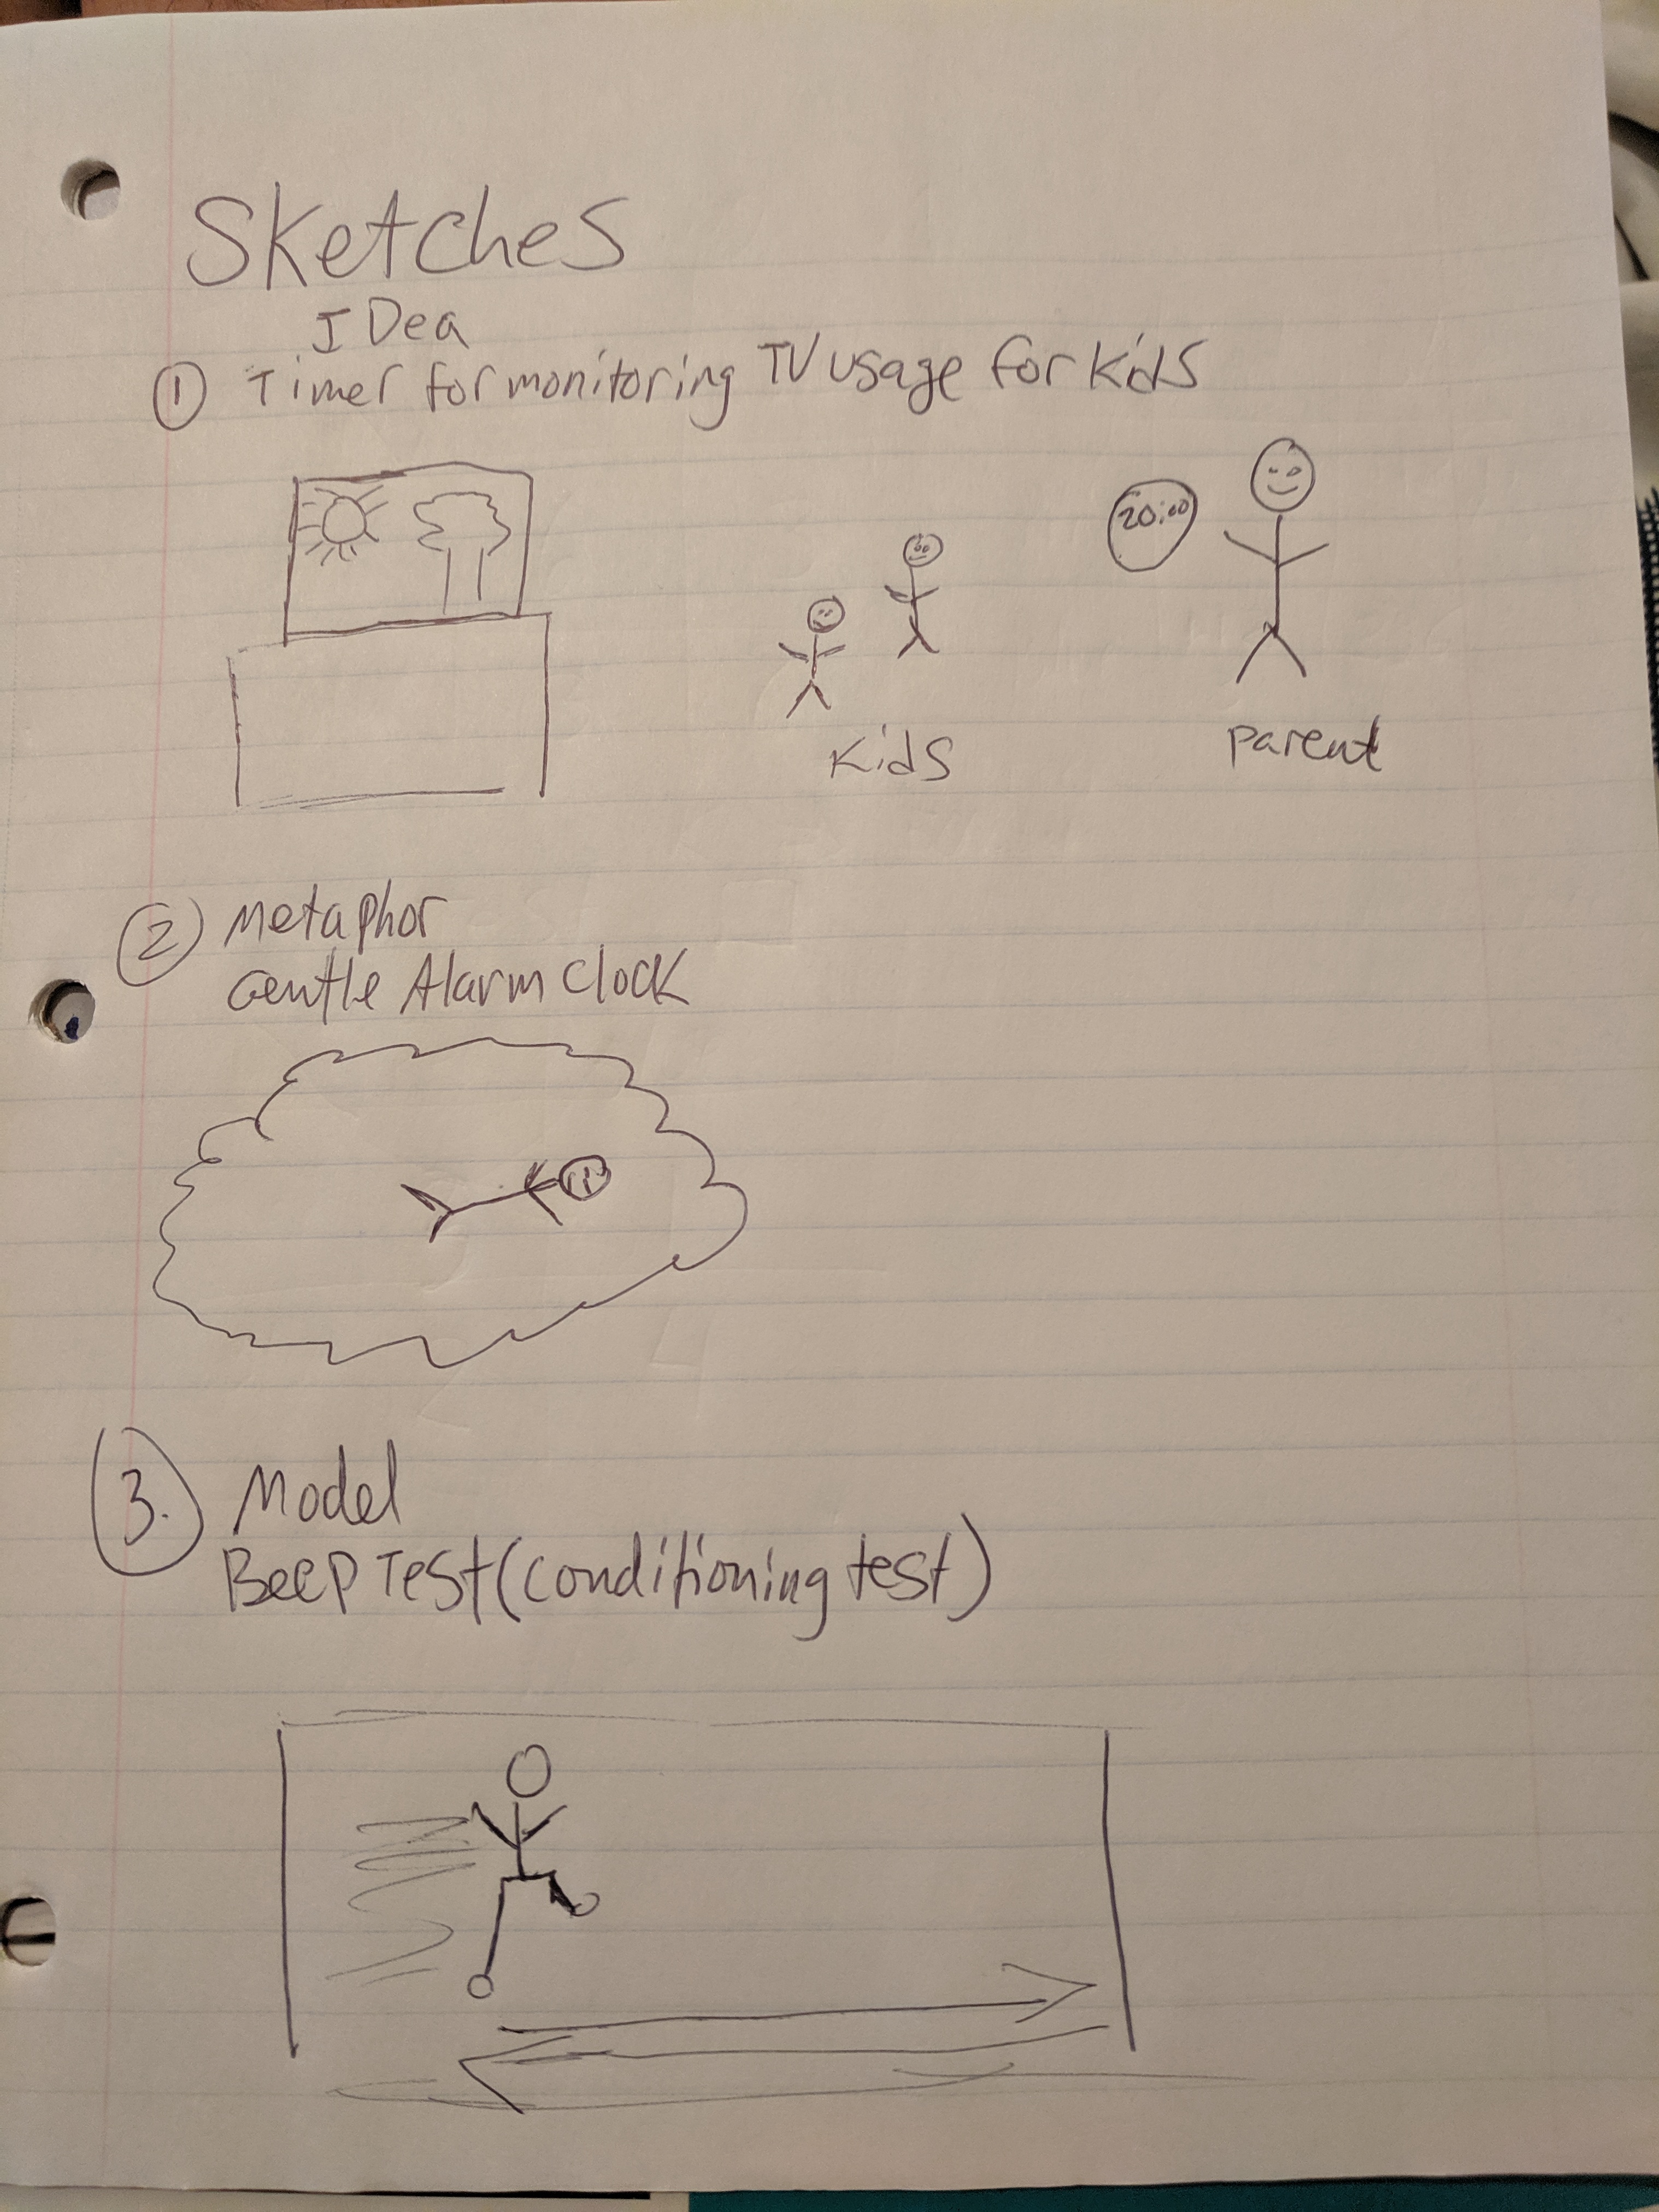 Sketches
IDea
① Timer for monitoring TV usage for kids
20:00
Kids
parent
② Metaphor
Gentle Alarm Clock
3. Model
Beep Test (conditioning test)